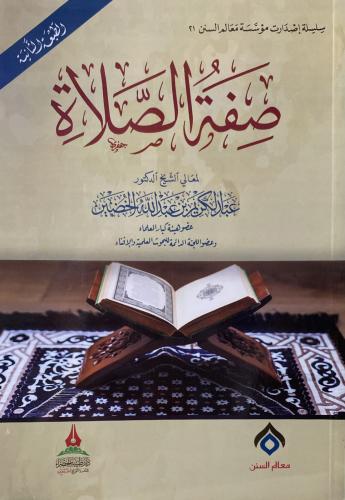 سلسلة إصدارات مؤسسة معالم السنن ٢١
الطبعة الثانية
صفة الصلاة
لمعالي الشيخ الدكتور
عبد الكريم بن عبد الله الخضير
عضو هيئة كبار العلماء
وعضو اللجنة الدائمة للبحوث العلمية والإفتاء
معالم السنن
دار طيبة الخضراء